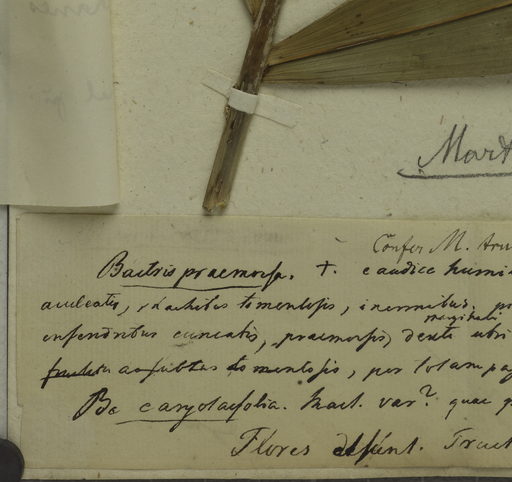 Mart
Confer M.
Bactris praemorsa. +. caudice humi
aculeatis, rhachibus tomentosis, inermibus,
marginali
ensendribus cuneatis, praemorsis,
subtus tomentosis, per totam pag
B. caryotaefolia. Mart. var? quae
Flores desunt. Fruct